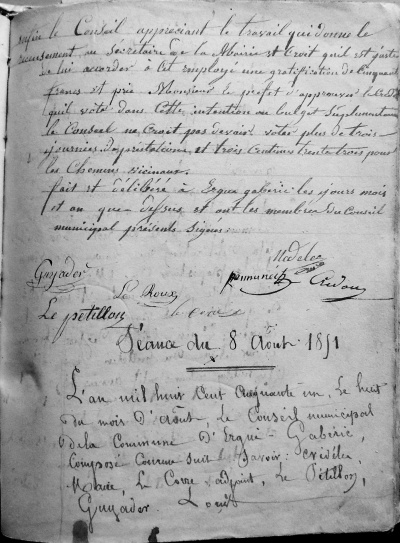 enfin le Conseil appréciant le travail qui donne le
recensement au Secrétaire de la Mairie et Croit qu'il est juste
de lui accorder à cet employé une gratification de Cinquante
francs et prie Monsieur le préfet d'approuver le Crédit
qu'il vote dans cette intention au budget Suplémentaire
le Conseil ne Croit pas devoir voter plus de trois
journées de prestations et trois Centimes trente trois pour
les Chemins vicinaux.
fait et délibéré à Ergué gabéric les jours mois
et an que dessus et ont les membres du Conseil
municipal présents Signés.
Nédélec
Guyader
Le Roux
Le petillon
Séance du 8 Août 1851
L'an mil huit Cent Cinquante un, le huit
du mois D'Août, le Conseil municipal
de la Commune D'Ergué-Gabéric,
Composé Comme Suit Savoir: Nédélec
Maire, Le Corre adjoint, Le Pétillon,
Guyader